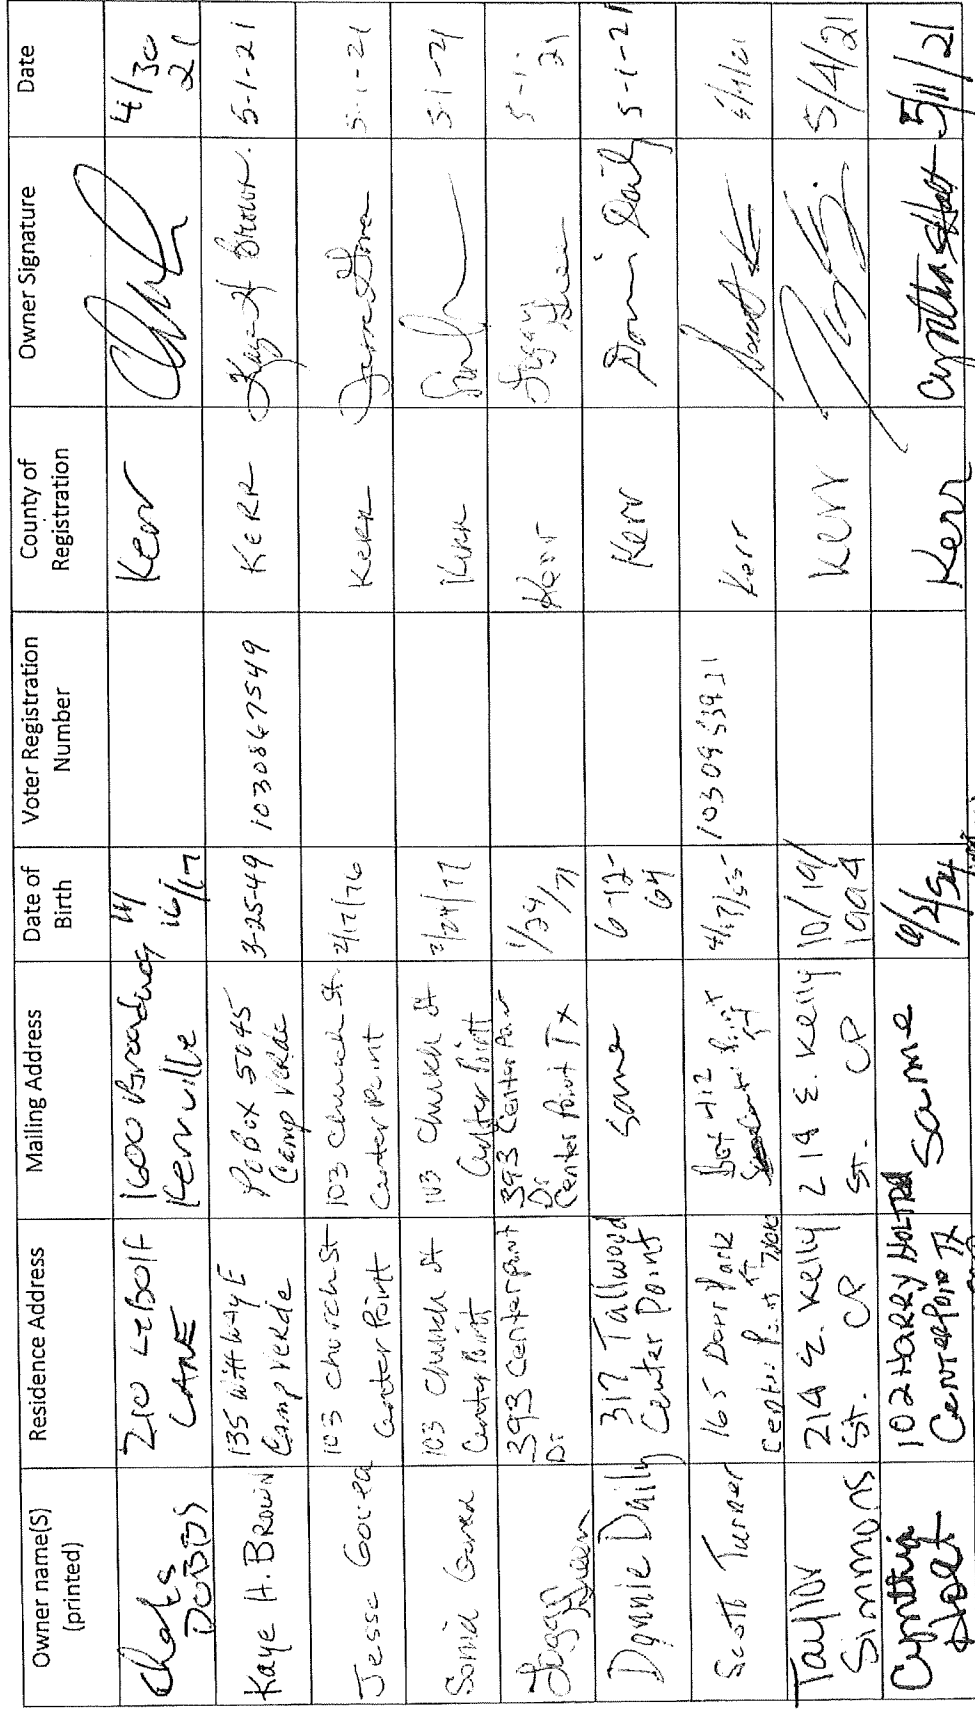 Owner name(S) (printed) | Residence Address | Mailing Address | Date of Birth | Voter Registration Number | County of Registration | Owner Signature | Date
Charles Dobbs | 210 LANE | 1600 Broadway Kerrville | Kerr | 4/30 21
Kaye H. BROWN | 135 Witt Way E Camp Verde | PO BOX 5045 Camp Verde | 3-25-49 | 1030867549 | KERR | Kaye H Brown | 5-1-21
Jesse | 103 Church St Center Point | 103 Church St. Center Point | 2/17/76 | KERR | 5-1-21
Sonia | 103 Church St Center Point | 103 Church St Center Point | Kerr | 5-1-21
Green | 393 Centerpoint Dr | 393 Center Point Dr Center Point TX | 1/24/71 | Kerr | Green | 5-1-21
Donnie Daily | 317 Tallwood Center Point | Same | 6-12-64 | Kerr | Donni Daily | 5-1-21
Scott Turner | 165 Park Center Point | Box 412 | 1030953931 | Kerr
Taylor Simmons | 214 E. Kelly St. CP | 214 E. Kelly St. CP | 10/19/1994 | Kerr | 5/4/21
Cynthia Holt | 102 HARRY CENTERPOINT TX | Same | Kerr | Cynthia Holt | 5/11/21